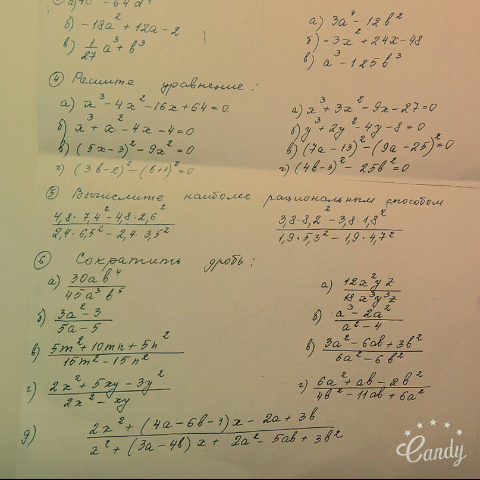 б) -18a² + 12a - 2
в) 1/27 a³ + b³
а) 3a⁴ - 12b²
б) -3x² + 24x - 48
в) a³ - 125b³
④ Решите уравнение:
а) x³ - 4x² - 16x + 64 = 0
б) x³ + x² - 4x - 4 = 0
в) (5x - 3)² - 9x² = 0
г) (3b - 2)² - (b + 1)² = 0
а) x³ + 3x² - 9x - 27 = 0
б) y³ + 2y² - 4y - 8 = 0
в) (7a - 13)² - (9a - 25)² = 0
г) (4b - 3)² - 25b² = 0
⑤ Вычислите наиболее рациональным способом
(4,8 · 7,4² - 4,8 · 2,6²) / (2,4 · 6,5² - 2,4 · 3,5²)
(3,8 · 8,2² - 3,8 · 1,8²) / (1,9 · 5,3² - 1,9 · 4,7²)
⑥ Сократить дробь:
а) 30ab⁴ / 45a³b⁵
б) (3a² - 3) / (5a - 5)
в) (5m² + 10mn + 5n²) / (15m² - 15n²)
г) (2x² + 5xy - 3y²) / (2x² - xy)
а) 12x²yz / 18x³y³z
б) (a³ - 2a²) / (a² - 4)
в) (3a² - 6ab + 3b²) / (6a² - 6b²)
г) (6a² + ab - 2b²) / (4b² - 11ab + 6a²)
д) (2x² + (4a - 6b - 1)x - 2a + 3b) / (x² + (3a - 4b)x + 2a² - 5ab + 3b²)
Candy